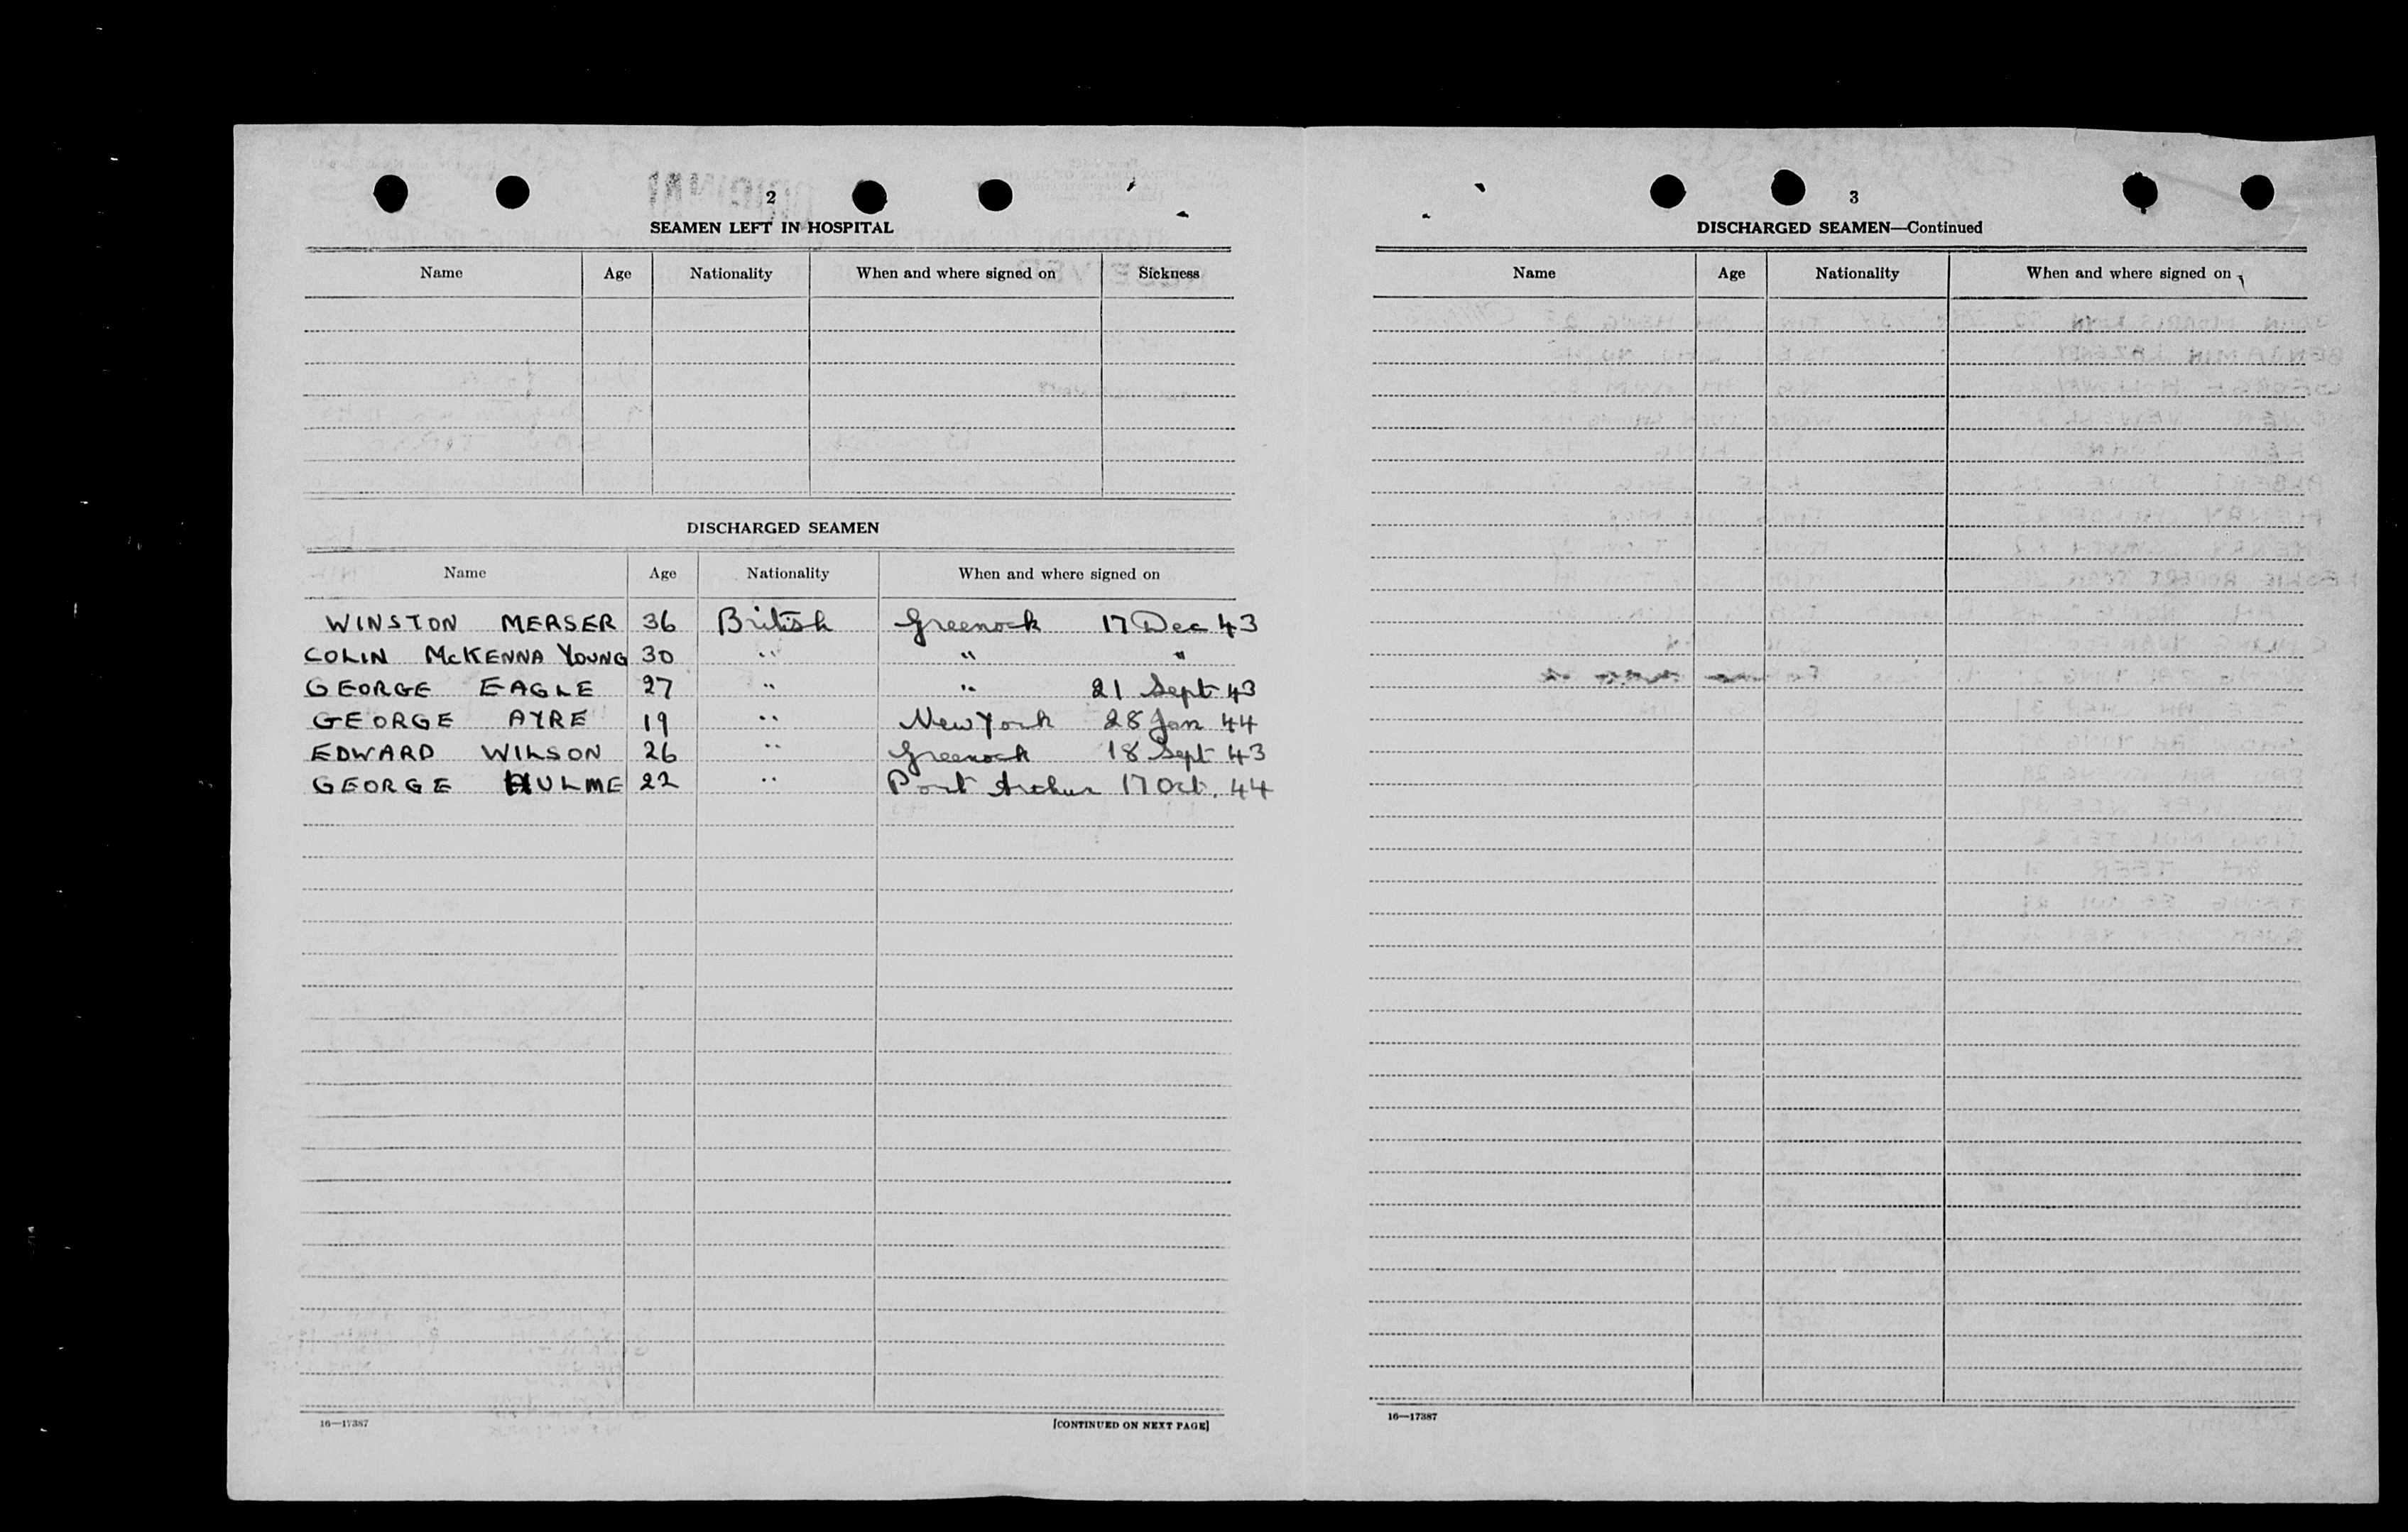 2
SEAMEN LEFT IN HOSPITAL
Name Age Nationality When and where signed on Sickness
DISCHARGED SEAMEN
Name Age Nationality When and where signed on
WINSTON MERSER 36 British Greenock 17 Dec 43
COLIN McKENNA YOUNG 30 " " "
GEORGE EAGLE 27 " " 21 Sept 43
GEORGE AYRE 19 " New York 28 Jan 44
EDWARD WILSON 26 " Greenock 18 Sept 43
GEORGE HULME 22 " Port Arthur 17 Oct. 44
16—17387 [CONTINUED ON NEXT PAGE]
3
DISCHARGED SEAMEN—Continued
Name Age Nationality When and where signed on
16—17387